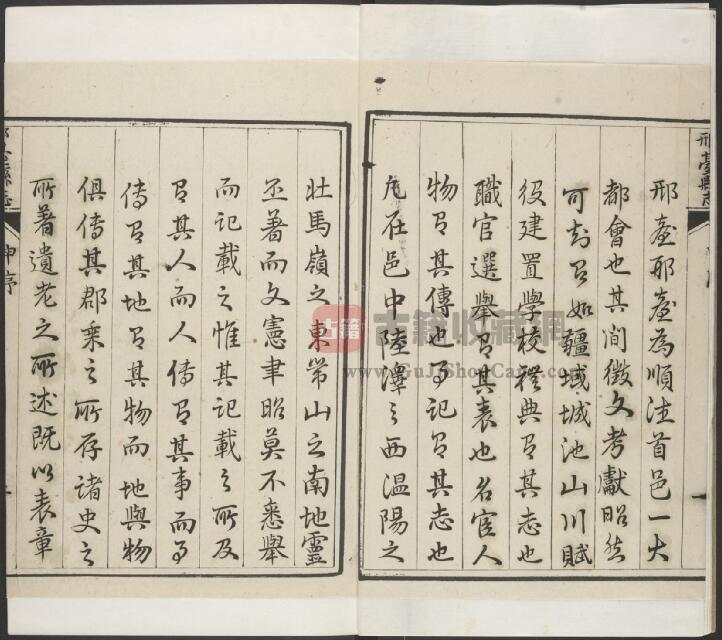 邢臺縣志
邢臺邢臺為順德首邑一大
都會也其間徵文考獻昭然
可知有如疆域城池山川賦
役建置學校禮典有其志也
職官選舉有其表也名宦人
物有其傳也事記有其志也
凡在邑中陸澤之西溫陽之
壯馬嶺之東常山之南地靈
丕著而文憲聿昭莫不悉舉
而記載之惟其記載之所及
有其人而人傳有其事而事
傳有其地有其物而地與物
俱傳其郡乘之所存諸史之
所著遺老之所述既以表章
序
古籍
古籍收藏網
www.GuJiShouCang.com